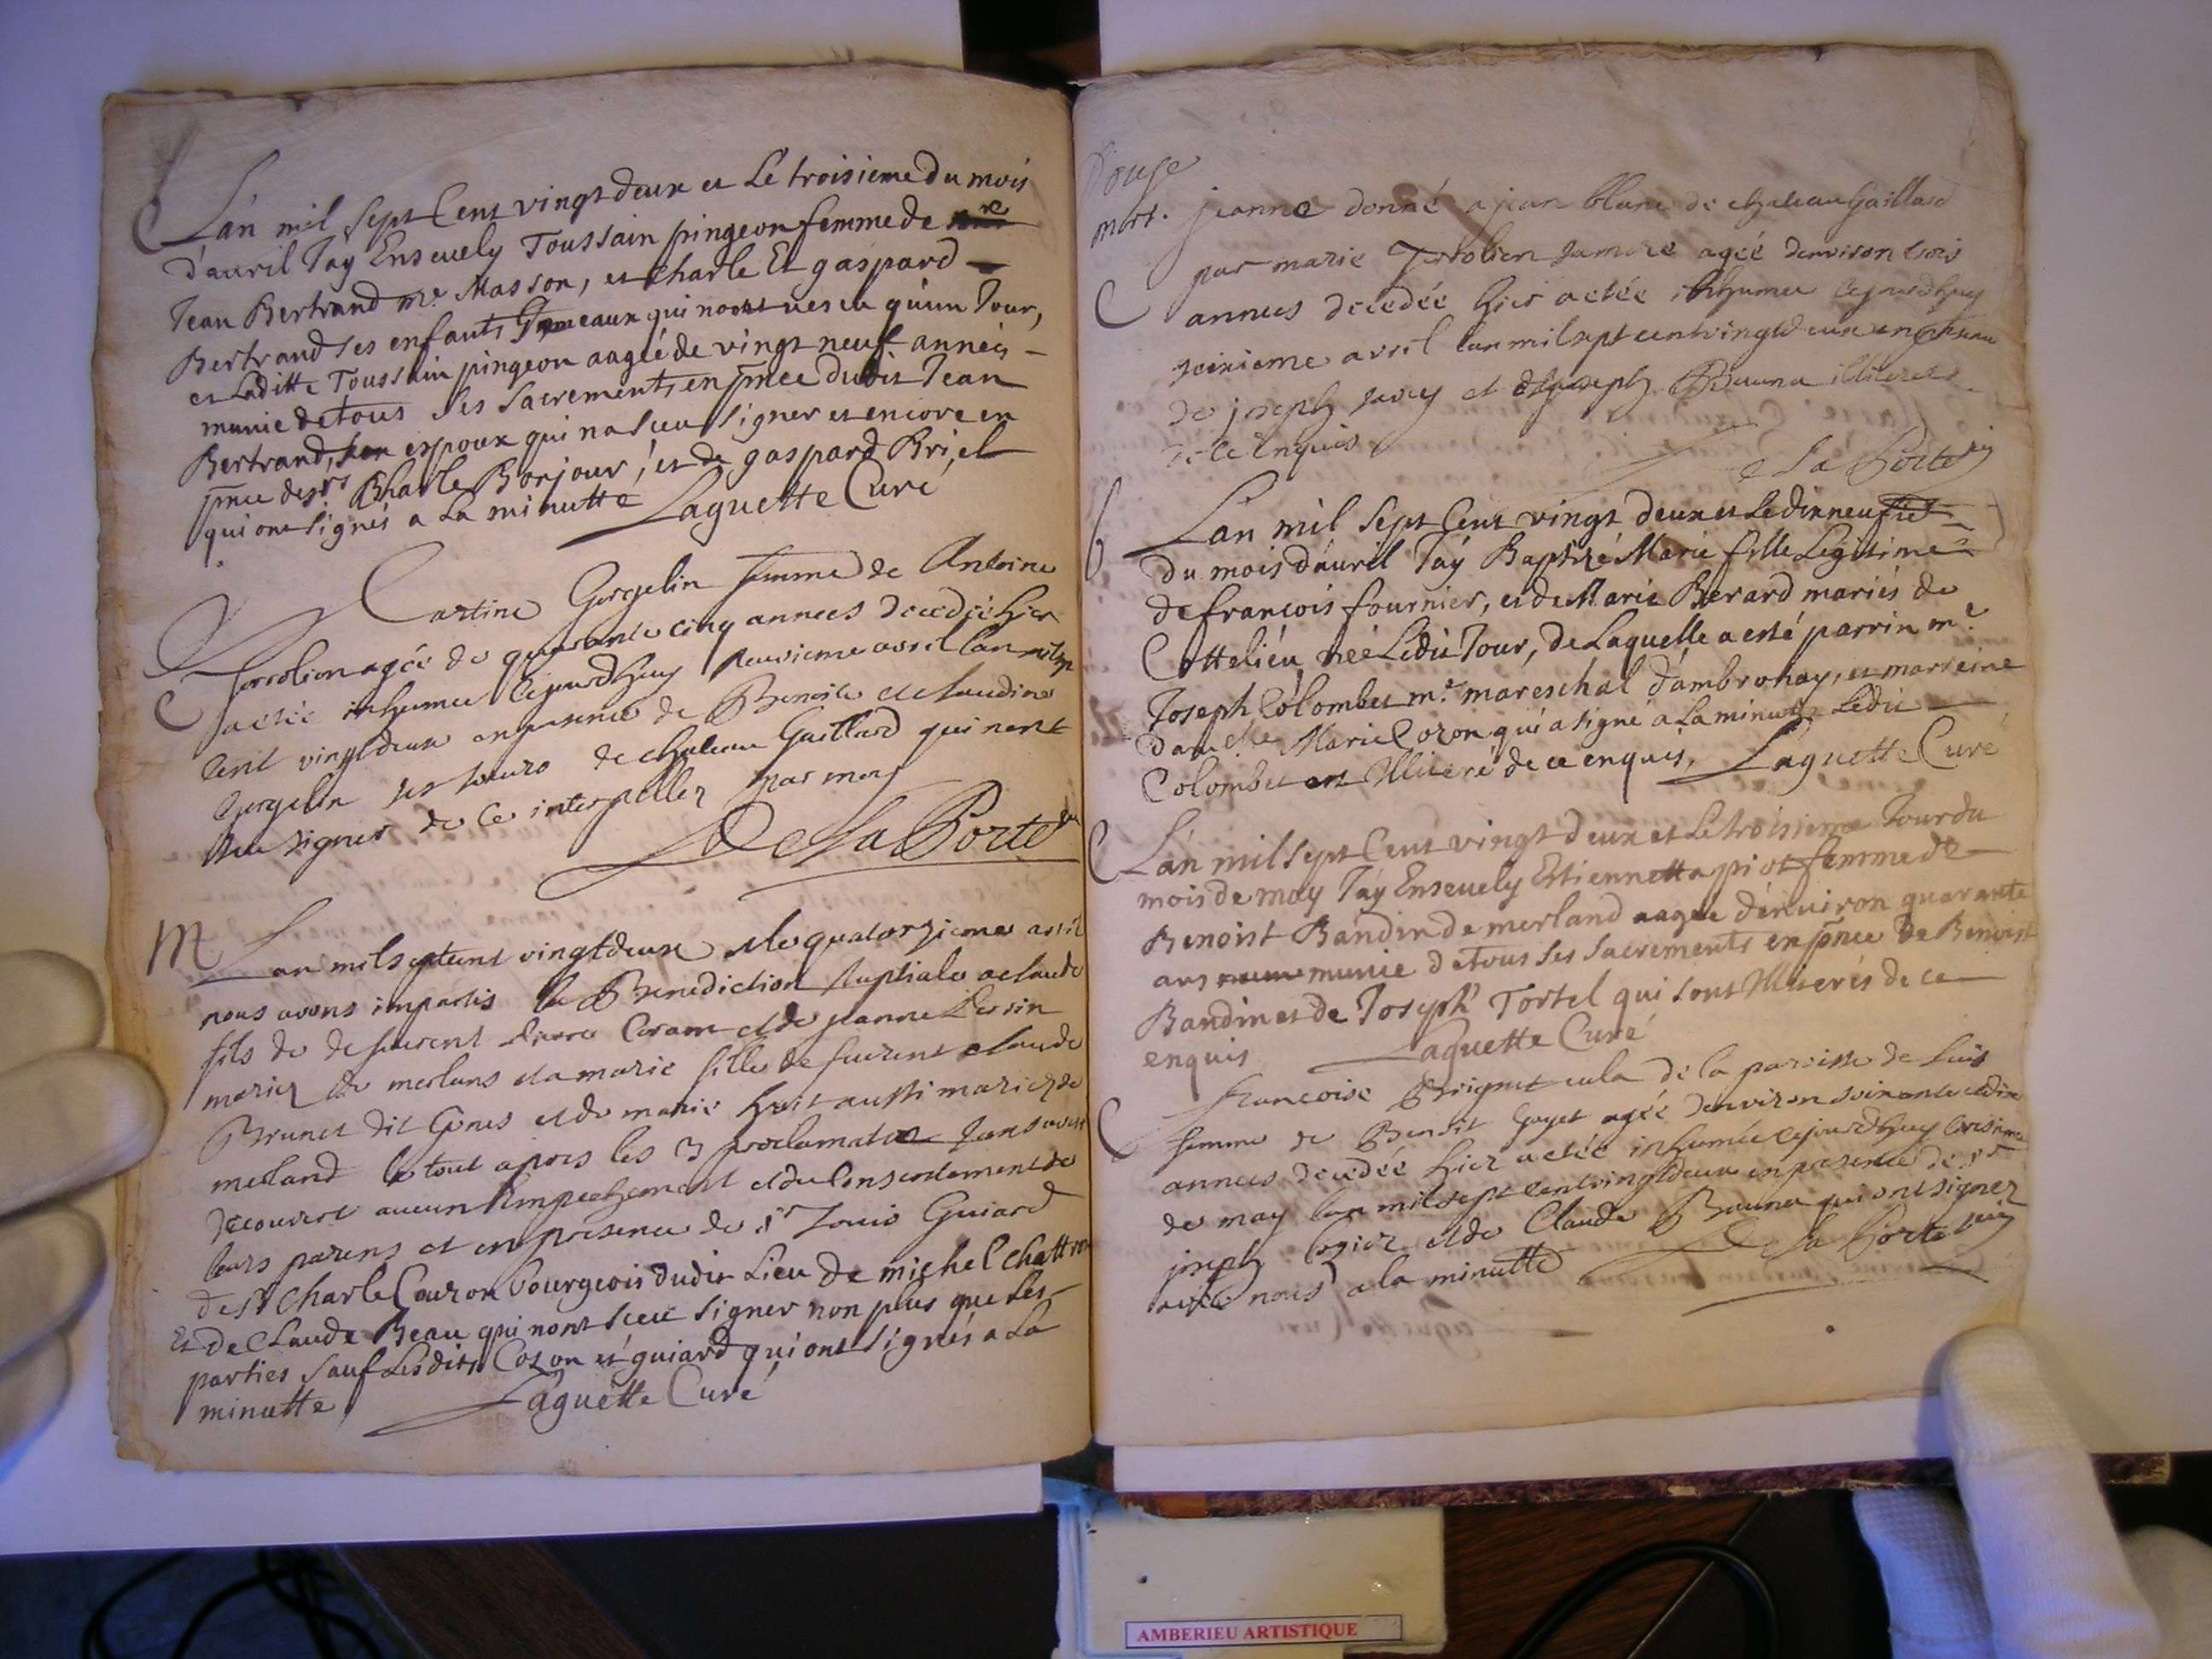 C
L'an mil sept Cent vingt deux et Le troisieme du mois
d'auril J'ay Enseuely Toussain pingeon femme de
Jean Bertrand me Masson, et Charle Et gaspard
Bertrand ses enfants Gemeaux qui nont uescu qu'un Jour,
et Laditte Toussain pingeon aagée de vingt neuf années
munie de tous les Sacrements en pnce dudit Jean
Bertrand, son espoux qui na sceu signer et encore en
pnce des srs Charle Bonjour, et de gaspard Briel
qui ont signés a La minutte Laguette Curé
C
Gorgelin femme de Antoine
agée de quarante cinq annees decedée hier
a etée inhumee cejourdhuy avril lan mil sept
cent vingt deux en presence de Benoite et claudine
Gorgelin ses soeurs de chateau Gaillard qui nont
sceu signer de ce interpellez par moy
De La Porte
M
Lan mil sept cent vingt deux et le quatorzieme avril
nous avons impartis la Benediction nuptiale a claude
fils de defeurent pierre Coram et de jeanne
mariez de merlans et a marie fille de feurent claude
Brunet dit et de marie huit aussi mariez de
merland le tout apres les 3 proclamations sans avoir
decouvert aucun Empechement et du Consentement de
leurs parens et en presence de sr Louis Guiard
de sr Charle Cozon bourgeois dudit Lieu de michel Chattron
et de Claude Beau qui nont sceu signer non plus que Les
parties sauf Lesdits Cozon et guiard qui ont signés a La
minutte Laguette Curé
Douse
mort. jeanne donné a jean blanc de chateau Gaillard
C
par marie sa mere agée denviron trois
annees decedée hier a etée inhumee cejourdhuy
seizieme avril lan mil sept cent vingt deux en presence
de joseph et de joseph Brunet illiteres
de ce Enquis
De La Porte
b
L'an mil sept Cent vingt deux et Le dixneufie
du mois d'auril J'ay Baptizé Marie fille Legitime
de françois fournier, et de Marie Berard mariés de
Cottelieu née Ledit Jour, de Laquelle a esté parrin me
Joseph Colombet me mareschal d'ambronay, et marreine
damelle Marie Cozon qui a signé a La minutte Ledit
Colombet est Illiteré de ce enquis, Laguette Curé
C
L'an mil sept Cent vingt deux et Le troisieme Jour du
mois de may J'ay Enseuely Estiennetta piot femme de
Benoist Bandin de merland aagee d'enuiron quarante
ans munie de tous Ses Sacrements en pnce De Benoist
Bandin et de Joseph Tortel qui sont Illiterés de ce
enquis Laguette Curé
C
francoise de la paroisse de
femme de Benoit Goyet agée denviron soixante et dix
annees decedée hier a etée inhumée cejourdhuy troisieme
de may lan mil sept cent vingt deux en presence de sr
joseph et de Claude Brunet qui ont signez
avec nous a la minutte De La Porte
AMBERIEU ARTISTIQUE